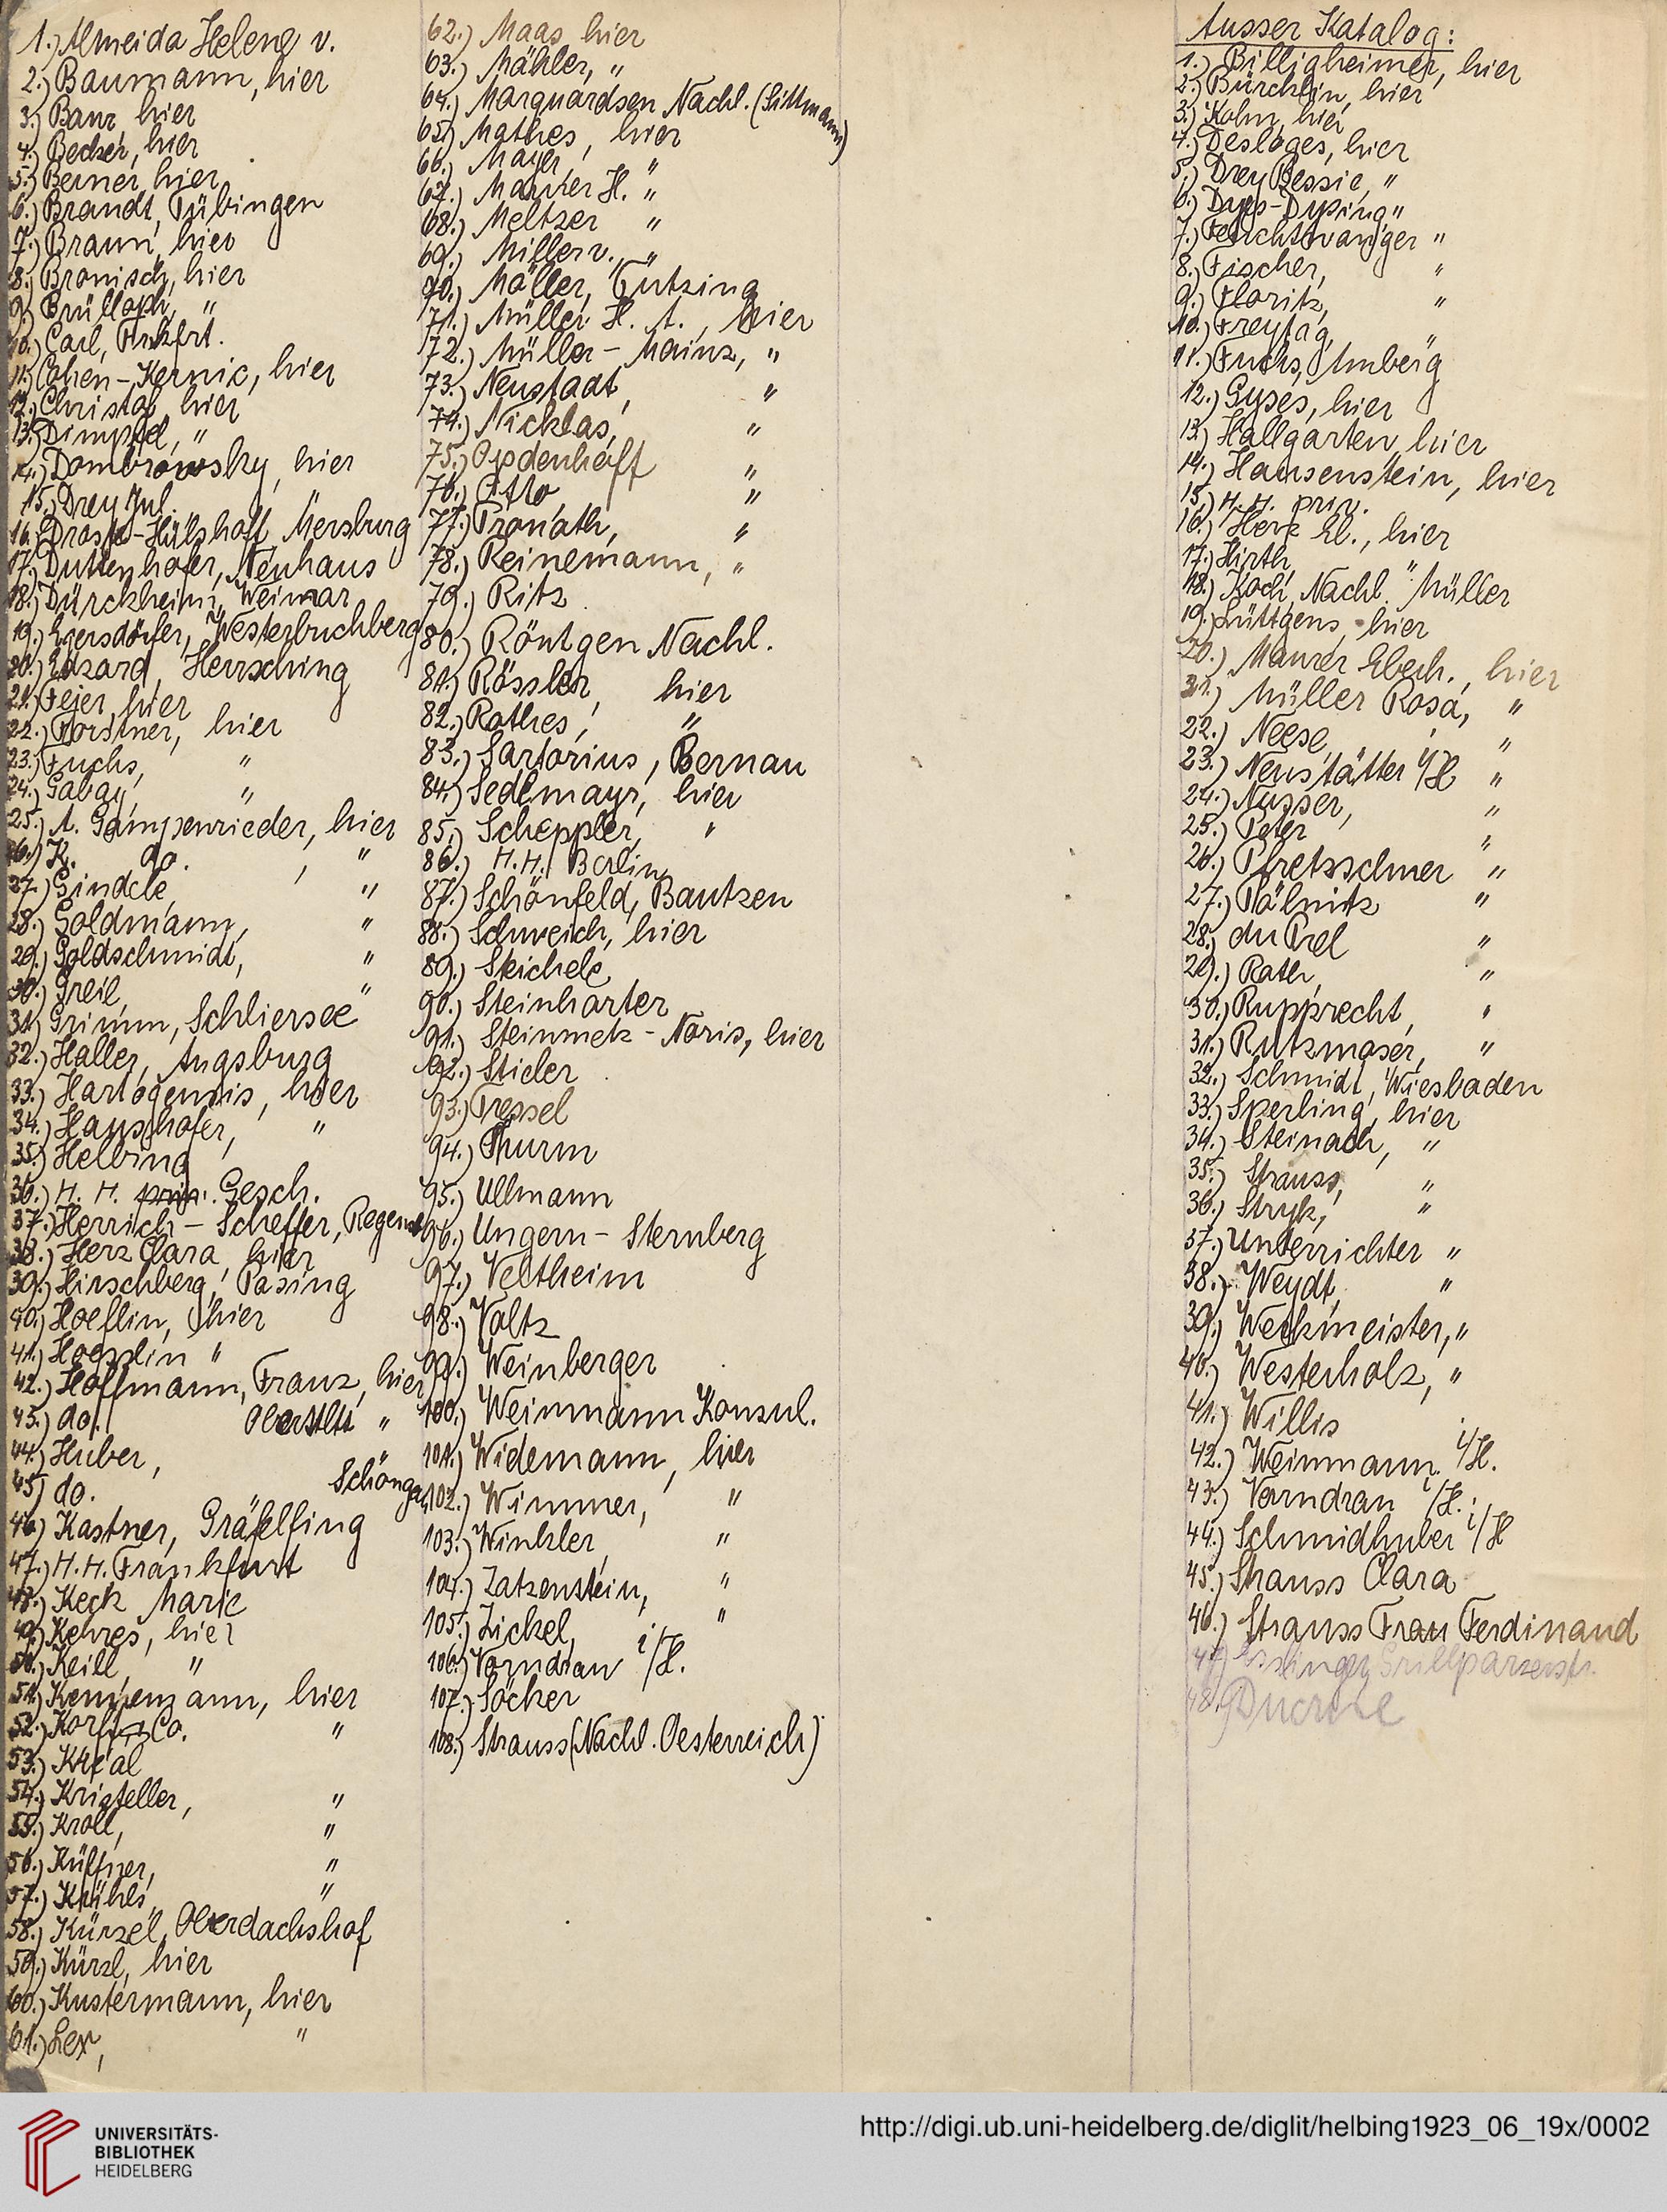 1.) Almeida Helene v.
2.) Baumann, hier
3.) Baur, hier
4.) Becker, hier
5.) Berner, hier
6.) Brandt, Tübingen
7.) Braun, hier
8.) Bronisch, hier
9.) "
10.) Carl, Frkfrt.
11.) Cohen-Kernic, hier
12.) Christof, hier
13.) Dimpfel, "
14.) Dombrowsky, hier
15.) Drey Jul.
16.) Droste-Hülshoff, Mersburg
17.) Duttenhofer, Neuhaus
18.) Dürckheim, Weimar
19.) Eiersdörfer, Westerbuchberg
20.) Edzard, Herrsching
21.) Fejer, hier
22.) Forstner, hier
23.) Fuchs, "
24.) Gabay, "
25.) A. Gampenrieder, hier
26.) K. do. , "
27.) Gindele, "
28.) Goldmann, "
29.) Goldschmidt, "
30.) Greil, "
31.) Grimm, Schliersee
32.) Haller, Augsburg
33.) Hartogensis, hier
34.) Haushofer, "
35.) Helbing
36.) H. H. priv. Gesch.
37.) Herrich-Scheffer, Regensb
38.) Herz Clara, hier
39.) Hirschberg, Pasing
40.) Hoeflin, hier
41.) Hoesslin "
42.) Hoffmann, Franz, hier
43.) do. Oberstlt "
44.) Huber,
45.) do. Schonga
46.) Kastner, Gräfelfing
47.) H. H. Frankfurt
48.) Keck Marie
49.) Kehres, hier
50.) Keill, "
51.) hier
52.) Korff & Co. "
53.)
54.) Kristeller, "
55.) Kroll, "
56.) Küffner, "
57.) "
58.) Kürzel, Oberdachshof
59.) Kürzl, hier
60.) Kustermann, hier
61.) Lex, "
62.) Maas hier
63.) Mähler, "
64.) Marquardsen Nachl. (Sittmann)
65.) Mathes, hier
66.) Mayer "
67.) H. "
68.) Meltzer "
69.) Miller v., "
70.) Möller, Tutzing
71.) Müller H. A., hier
72.) Müller-Mainz, "
73.) Neustadt, "
74.) Nicklas, "
75.) Opdenhoff "
76.) Otto "
77.) "
78.) Reinemann, "
79.) Ritz
80.) Röntgen Nachl.
81.) Rössler, hier
82.) Rothes, "
83.) Sartorius, Bernau
84.) Sedlmayr, hier
85.) Scheppler, "
86.) H. H. Berlin
87.) Schönfeld, Bautzen
88.) Schweich, hier
89.) Steichele
90.) Steinharter
91.) Steinmetz-Noris, hier
92.) Stieler
93.) Tressel
94.) Thurm
95.) Ullmann
96.) Ungern-Sternberg
97.) Veltheim
98.) Voltz
99.) Weinberger
100.) Weinmann Konsul.
101.) Widemann, hier
102.) Wimmer, "
103.) Winkler, "
104.) Zatzenstein, "
105.) Zickel, "
106.) Vorndran i/H.
107.) Söcker
108.) Strauss (Nachl. Oesterreich)
Ausser Katalog:
1.) Billigheimer, hier
2.) Bürcklin, hier
3.) Kohn, hier
4.) Desloges, hier
5.) Drey Bessie, "
6.) "
7.) Feuchtwanger "
8.) Fischer, "
9.) Floritz, "
10.) Freytag, "
11.) Fuchs, Amberg
12.) Gyses, hier
13.) Hallgarten, hier
14.) Hausenstein, hier
15.) H. H. priv.
16.) El., hier
17.) Hirth, "
18.) Koch, Nachl. Müller
19.) Lüttgens, hier
20.) Maurer Ebech., hier
21.) Müller Rosa, "
22.) Neese, "
23.) Neustätter i/H "
24.) Nusser, "
25.) Peter "
26.) Pfretzschner "
27.) Pölnitz "
28.) du Prel "
29.) Rath, "
30.) Rupprecht, "
31.) Rutzmoser, "
32.) Schmidt, Wiesbaden
33.) Sperling, hier
34.) Steinach, "
35.) Strauss, "
36.) Stryk, "
37.) Unterrichter "
38.) Weydt, "
39.) Werkmeister, "
40.) Westerholz, "
41.) Willis
42.) Weinmann i/H.
43.) Vorndran i/H.
44.) Schmidhuber i/H
45.) Strauss Clara
46.) Strauss Frau Ferdinand
47.) Esslinger, Grillparzerstr.
48.) Ducrue
UNIVERSITÄTS-
BIBLIOTHEK
HEIDELBERG
http://digi.ub.uni-heidelberg.de/diglit/helbing1923_06_19x/0002